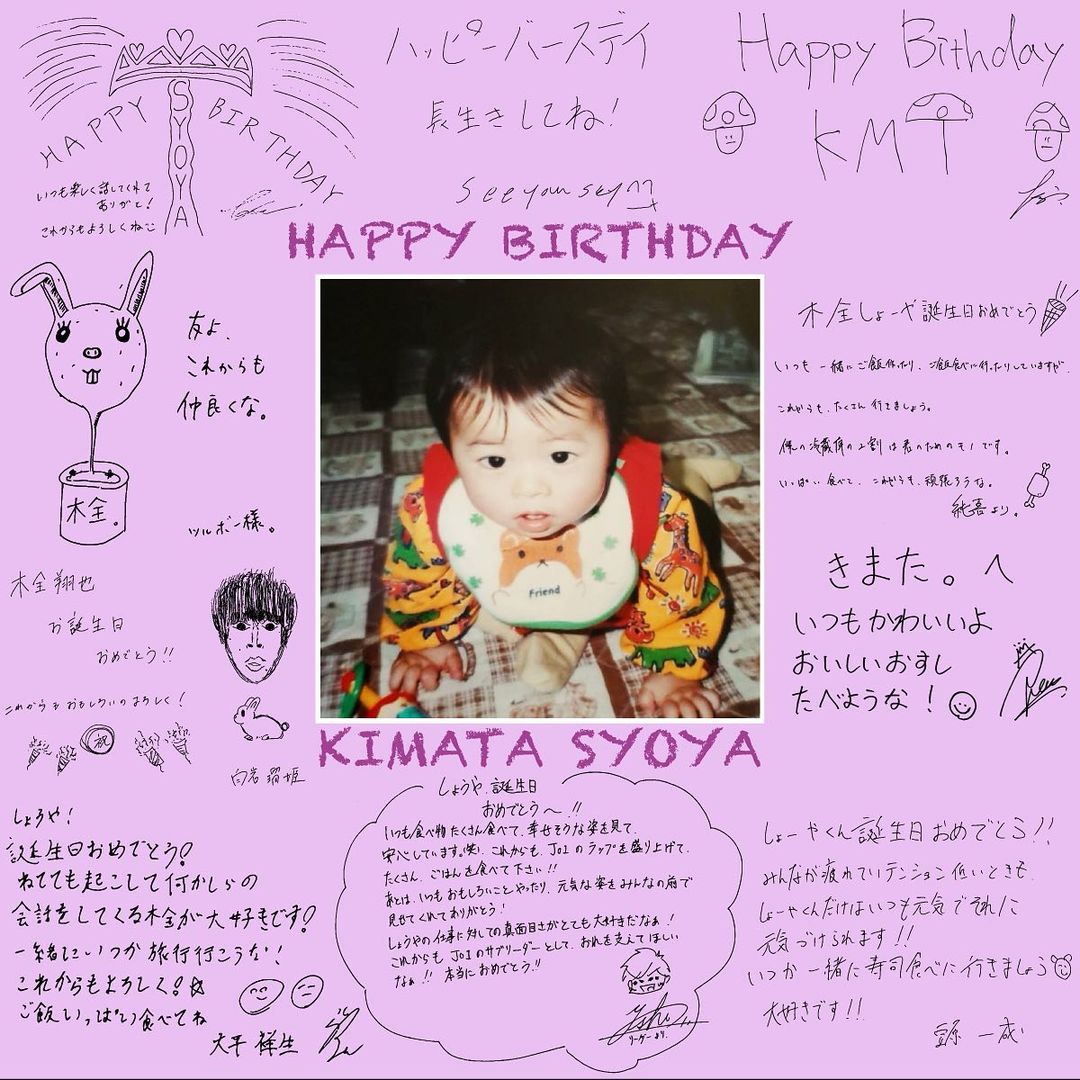 HAPPY BIRTHDAY
SYOYA
いつも楽しく話してくれて
ありがと!
これからもよろしくね
ハッピーバースデイ
長生きしてね!
See you sky
Happy Bithday
KMT
HAPPY BIRTHDAY
友よ、
これからも
仲良くな。
木全。
ツルボー様。
木全しょーや誕生日おめでとう
いつも一緒にご飯作ったり、ご飯食べに行ったりしていますが、
これからも、たくさん行きましょう。
僕の冷蔵庫の2割は君のためのモノです。
いっぱい食べて、これからも、頑張ろうな。
純喜より。
Friend
木全翔也
お誕生日
おめでとう!!
これからもおもしろいのよろしく!
祝
白岩瑠姫
きまた。へ
いつもかわいいよ
おいしいおすし
たべような!
KIMATA SYOYA
しょうや!
誕生日おめでとう!
ねてても起こして何かしらの
会話をしてくる木全が大好きです!
一緒にいつか旅行行こうな!
これからもよろしく!☆
ご飯いっぱい食べてね
大平祥生
しょうや、誕生日
おめでとう〜!!
いつも食べ物たくさん食べて、幸せそうな姿を見て、
安心しています。(笑) これからも、JO1のラップを盛り上げて、
たくさん、ごはんを食べて下さい!!
あとは、いつもおもしろいことやったり、元気な姿をみんなの前で
見せてくれてありがとう!
しょうやの仕事に対しての真面目さがとても大好きだなぁ!
これからもJO1のサブリーダーとして、おれを支えてほしい
なぁ!! 本当におめでとう!!
リーダーより。
しょーやくん誕生日おめでとう!!
みんなが疲れていテンション低いときも、
しょーやくんだけはいつも元気でそれに
元気づけられます!!
いつか一緒に寿司食べに行きましょう
大好きです!!
一成